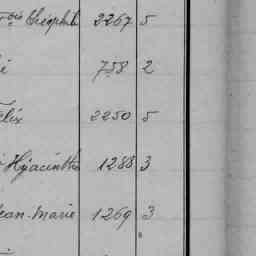 çois Théophile 2267 5
é 758 2
Félix 2250 5
Hyacinthe 1288 3
Jean-Marie 1269 3